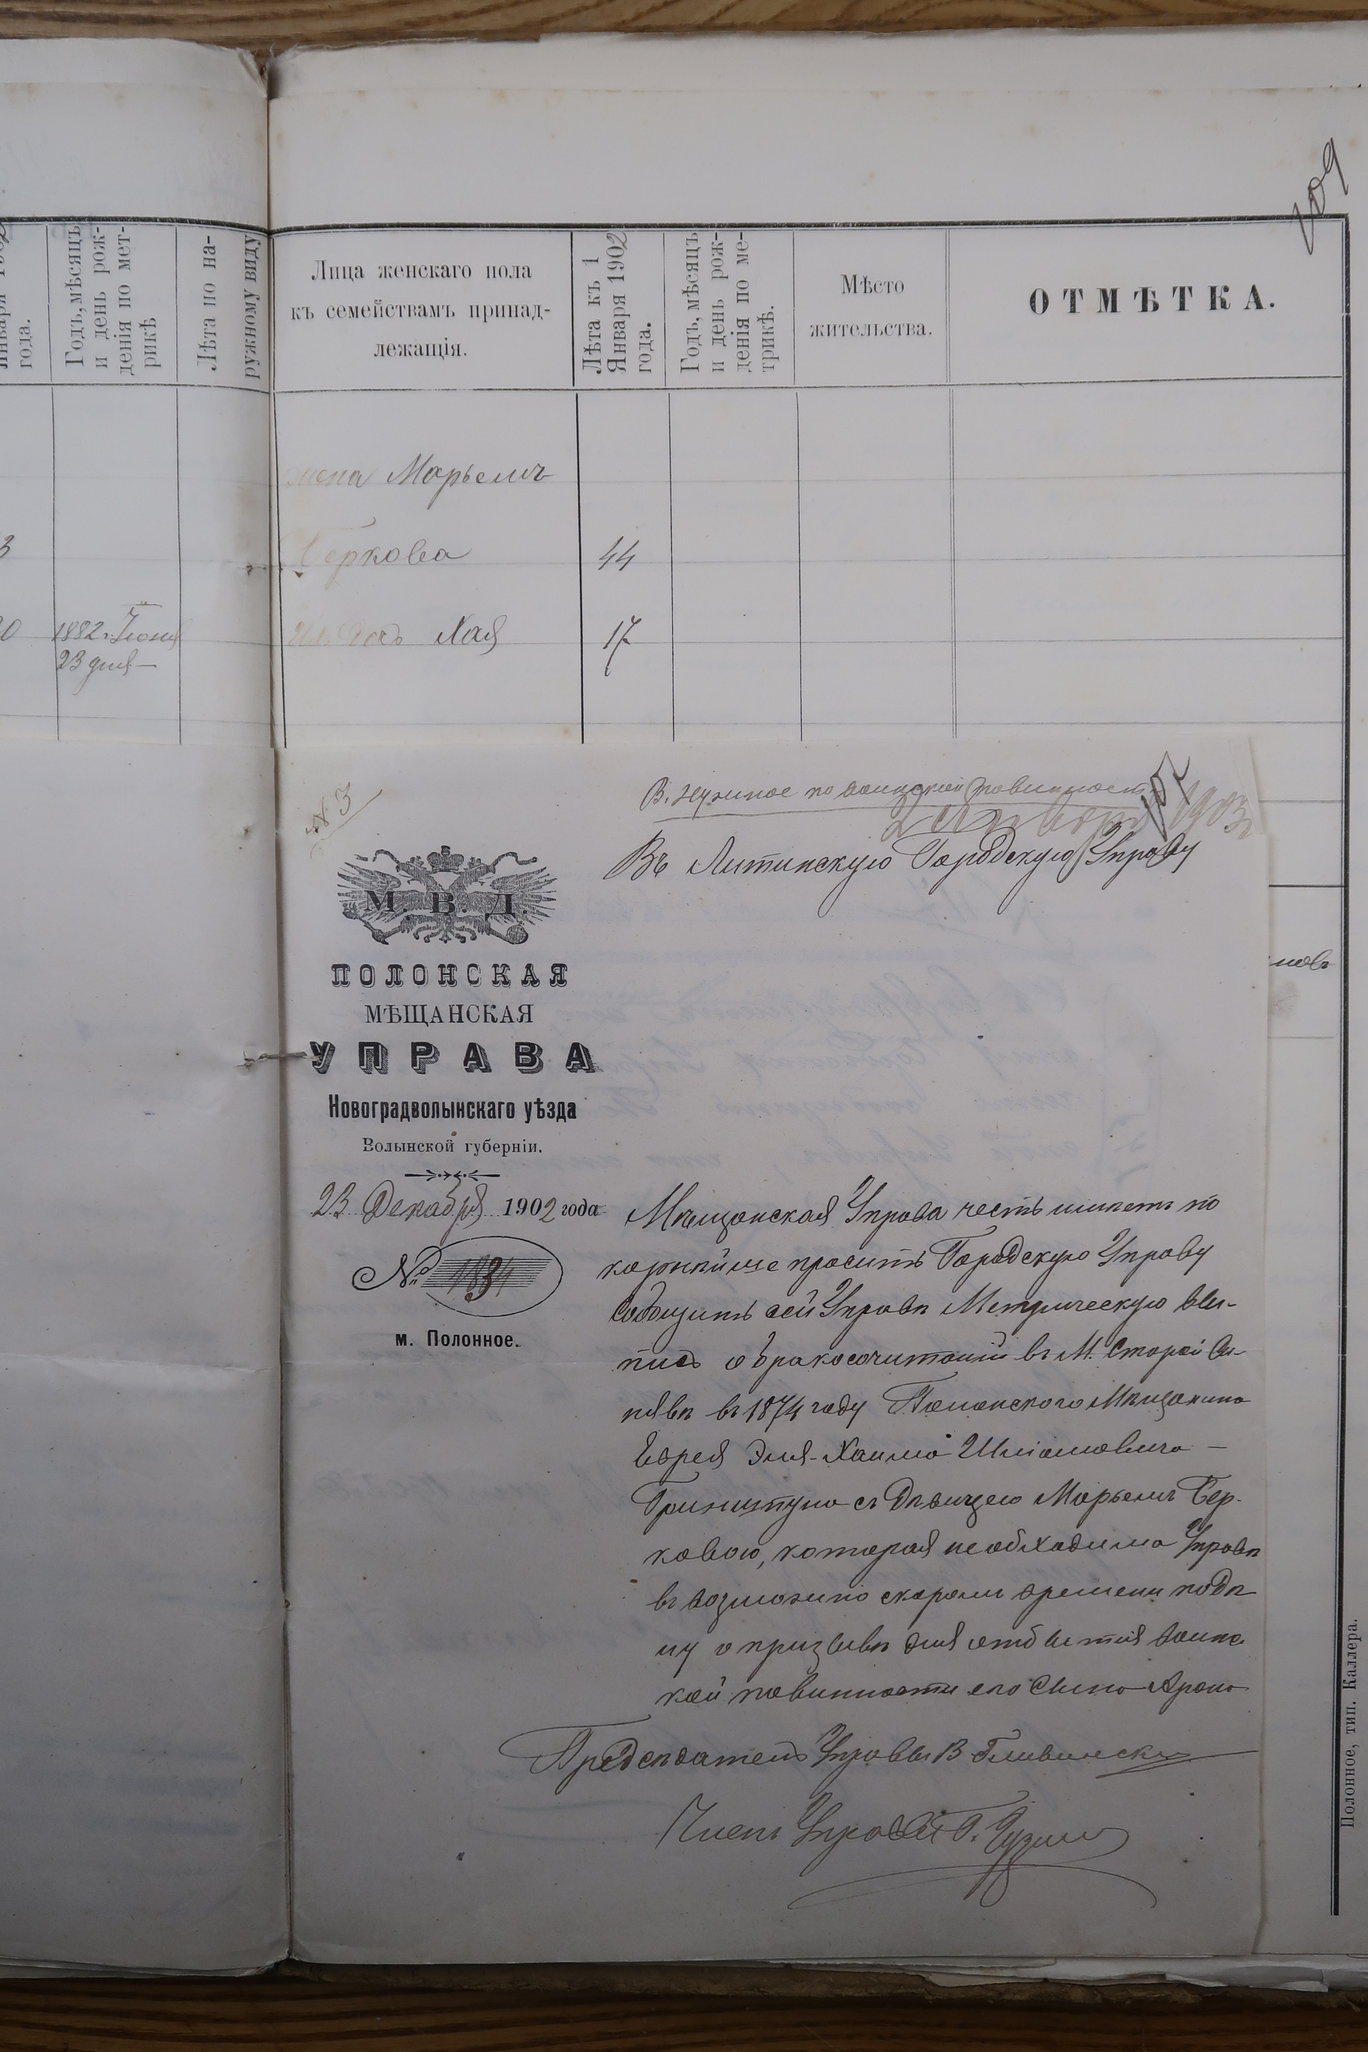 109
Января 1902
года.
Годъ, мѣсяцъ
и день рож-
денія по мет-
рикѣ
Лѣта по на-
ружному виду
Лица женскаго пола
къ семействамъ принад-
лежащія.
Лѣта къ 1
Января 1902
года.
Годъ, мѣсяцъ
и день рож-
денія по ме-
трикѣ.
Мѣсто
жительства.
ОТМѢТКА.
жена Марьемъ
3
Беркова 44
0 1882 г. Іюня
23 дня
дочь Хая 17
№ 3
В. нужное по воинской повинности
107
1903
Въ Литинскую Городскую Управу
М. В. Д.
ПОЛОНСКАЯ
МѢЩАНСКАЯ
УПРАВА
Новоградволынскаго уѣзда
Волынской губерніи.
23 Декабря 1902 года
№ 1834
м. Полонное.
новъ
Мѣщанская Управа честь имѣетъ по
корнѣйше просить Городскую Управу
сообщить сей Управѣ Метрическую вы-
пись о бракосочитаніи въ М. Старой Си-
нявѣ въ 1874 году Полонскаго Мѣщанина
Еврея Эля-Хаима Шліомовича
Гринштуна съ Дѣвицею Марьемъ Бер-
ковою, которая необходима Управѣ
въ возможно скоромъ времени по дѣ
лу о призывѣ для отбытія воинс
кой повинности его Сына Арона
Предсѣдатель Управы В Гливинскій
Членъ Управы Г.
Полонное, тип. Каллера.